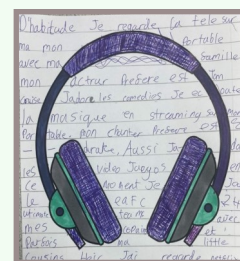 D'habitude Je regarde la tele sur
ma mon Portable
avec ma famille
mon acteur Prefere est Tom
Cruise J'adore les comedies Je
la musique en streaming sur mon
Portable. Mon chanter Prefere est
drake. Aussi Ja
les video Joeyos
ce moment Je
le eafc 24
ultimate team avec
mes copains et
Parfois ma little
Cousins Hier J'ai regarde